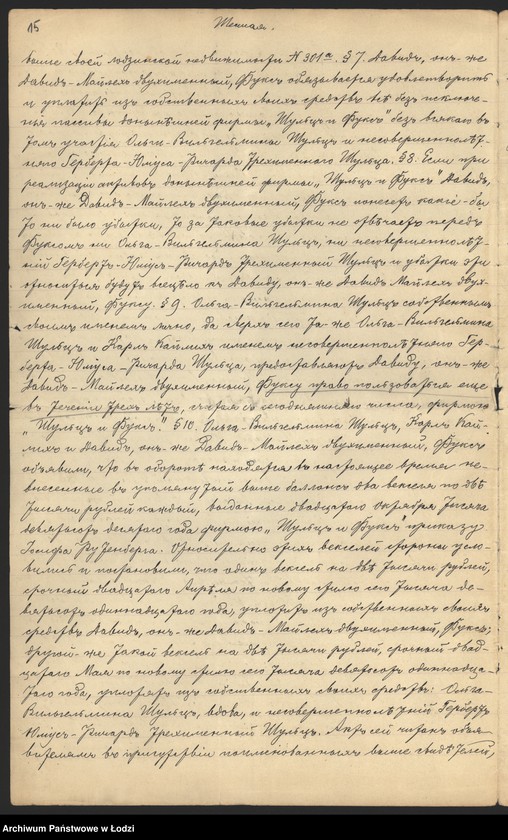 15
выше своей лодзинской недвижимости N 301ª. § 7. Давидъ, онъ-же
Давидъ-Майлехъ двухименный, Фуксъ обязывается удовлетворить
и уплатить изъ собственныхъ своихъ средствъ всѣ безъ исключе-
нія пассивы донынѣшней фирмы „Шульцъ и Фуксъ" безъ всякаго въ
томъ участія Ольги-Вильгельмины Шульцъ и несовершеннолѣт-
няго Герберта-Юліуса-Ричарда трехименнаго Шульца. § 8. Если при
реализаціи активовъ донынѣшней фирмы „Шульцъ и Фуксъ" Давидъ,
онъ-же Давидъ-Майлехъ двухименный, Фуксъ понесетъ какіе-бы
то ни было убытки, то за таковые убытки не отвѣчаетъ передъ
Фуксомъ ни Ольга-Вильгельмина Шульцъ, ни несовершеннолѣт-
ній Гербертъ-Юліусъ-Ричардъ трехименный Шульцъ и убытки эти
относиться будутъ всецѣло къ Давиду, онъ-же Давидъ Майлехъ двух-
именный, Фуксу. § 9. Ольга-Вильгельмина Шульцъ собственнымъ
своимъ именемъ лично, да сверхъ сего та-же Ольга-Вильгельмина
Шульцъ и Карлъ Каймъ именемъ несовершеннолѣтняго Гер-
берта-Юліуса-Ричарда Шульца, предоставляютъ Давиду, онъ-же
Давидъ-Майлехъ двухименный, Фуксу право пользоваться еще
въ теченіи трехъ лѣтъ, считая съ сегодняшняго числа, фирмою
„Шульцъ и Фуксъ". § 10. Ольга-Вильгельмина Шульцъ, Карлъ Кай-
мъ и Давидъ, онъ-же Давидъ-Майлехъ двухименный, Фуксъ
объявили, что въ оборотѣ находятся въ настоящее время не-
внесенные въ упомянутый выше балансъ два векселя по двѣ
тысячи рублей каждый, выданные двадцатаго октября тысяча
девятьсотъ десятаго года фирмою „Шульцъ и Фуксъ приказу
Іосифа Рутенберга. Относительно этихъ векселей стороны усло-
вились и постановили, что одинъ вексель на двѣ тысячи рублей,
срочный двадцатаго Апрѣля по новому стилю сего тысяча де-
вятьсотъ одиннадцатаго года, уплотитъ изъ собственныхъ своихъ
средствъ Давидъ, онъ-же Давидъ-Майлехъ двухименный, Фуксъ;
другой-же такой вексель на двѣ тысячи рублей, срочный двад-
цатаго Мая по новому стилю сего тысяча девятьсотъ одиннадца-
таго года, уплотятъ изъ собственныхъ своихъ средствъ: Ольга-
Вильгельмина Шульцъ, вдова, и несовершеннолѣтній Гербертъ
Юліусъ-Ричардъ трехименный Шульцъ. Актъ сей читанъ объя-
вителямъ въ присутствіи поименованныхъ выше свидѣтелей,
Archiwum Państwowe w Łodzi